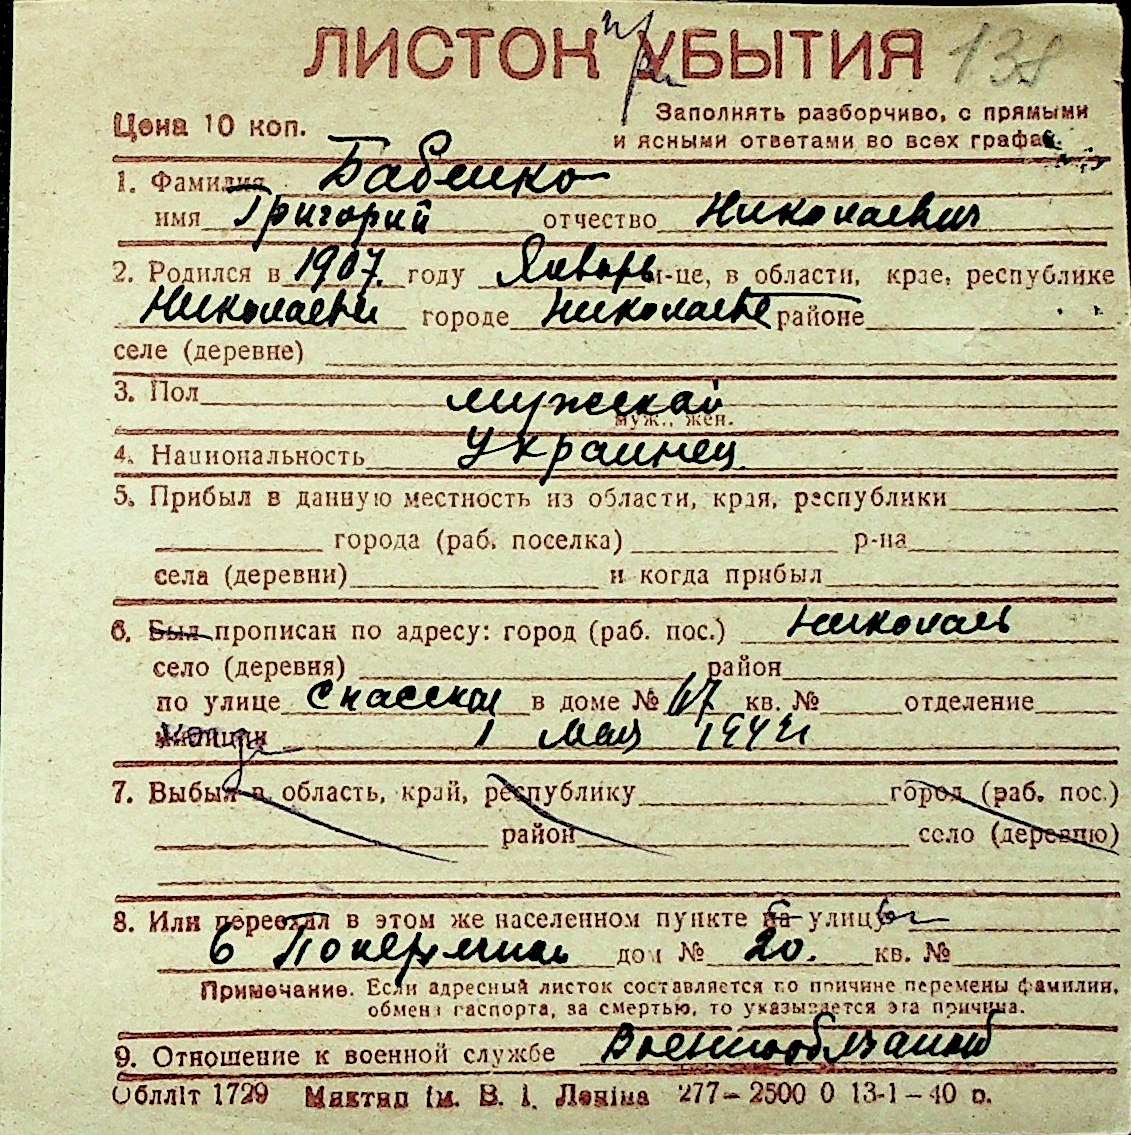 ЛИСТОК УБЫТИЯ 138
Цена 10 коп.
Заполнять разборчиво, с прямыми
и ясными ответами во всех графах.
1. Фамилия Бабенко
имя Григорий отчество Николаевич
2. Родился в 1907 году Январь м-це, в области, крае, республике
Николаеви городе Николаеве районе
селе (деревне)
3. Пол мужской
муж., жен.
4. Национальность Украинец
5. Прибыл в данную местность из области, края, республики
города (раб. поселка) р-на
села (деревни) и когда прибыл
6. Был прописан по адресу: город (раб. пос.) Николаев
село (деревня) район
по улице Спасская в доме № 67 кв. № отделение
милиции 1 мая 1944
7. Выбыл в область, край, республику город (раб. пос.)
район село (деревню)
8. Или переехал в этом же населенном пункте на улицу
дом № 20. кв. №
Примечание. Если адресный листок составляется по причине перемены фамилии,
обмена паспорта, за смертью, то указывается эта причина.
9. Отношение к военной службе Военнообязаный
Облліт 1729 Миктип ім. В. І. Леніна 277–2500 0 13-1–40 р.